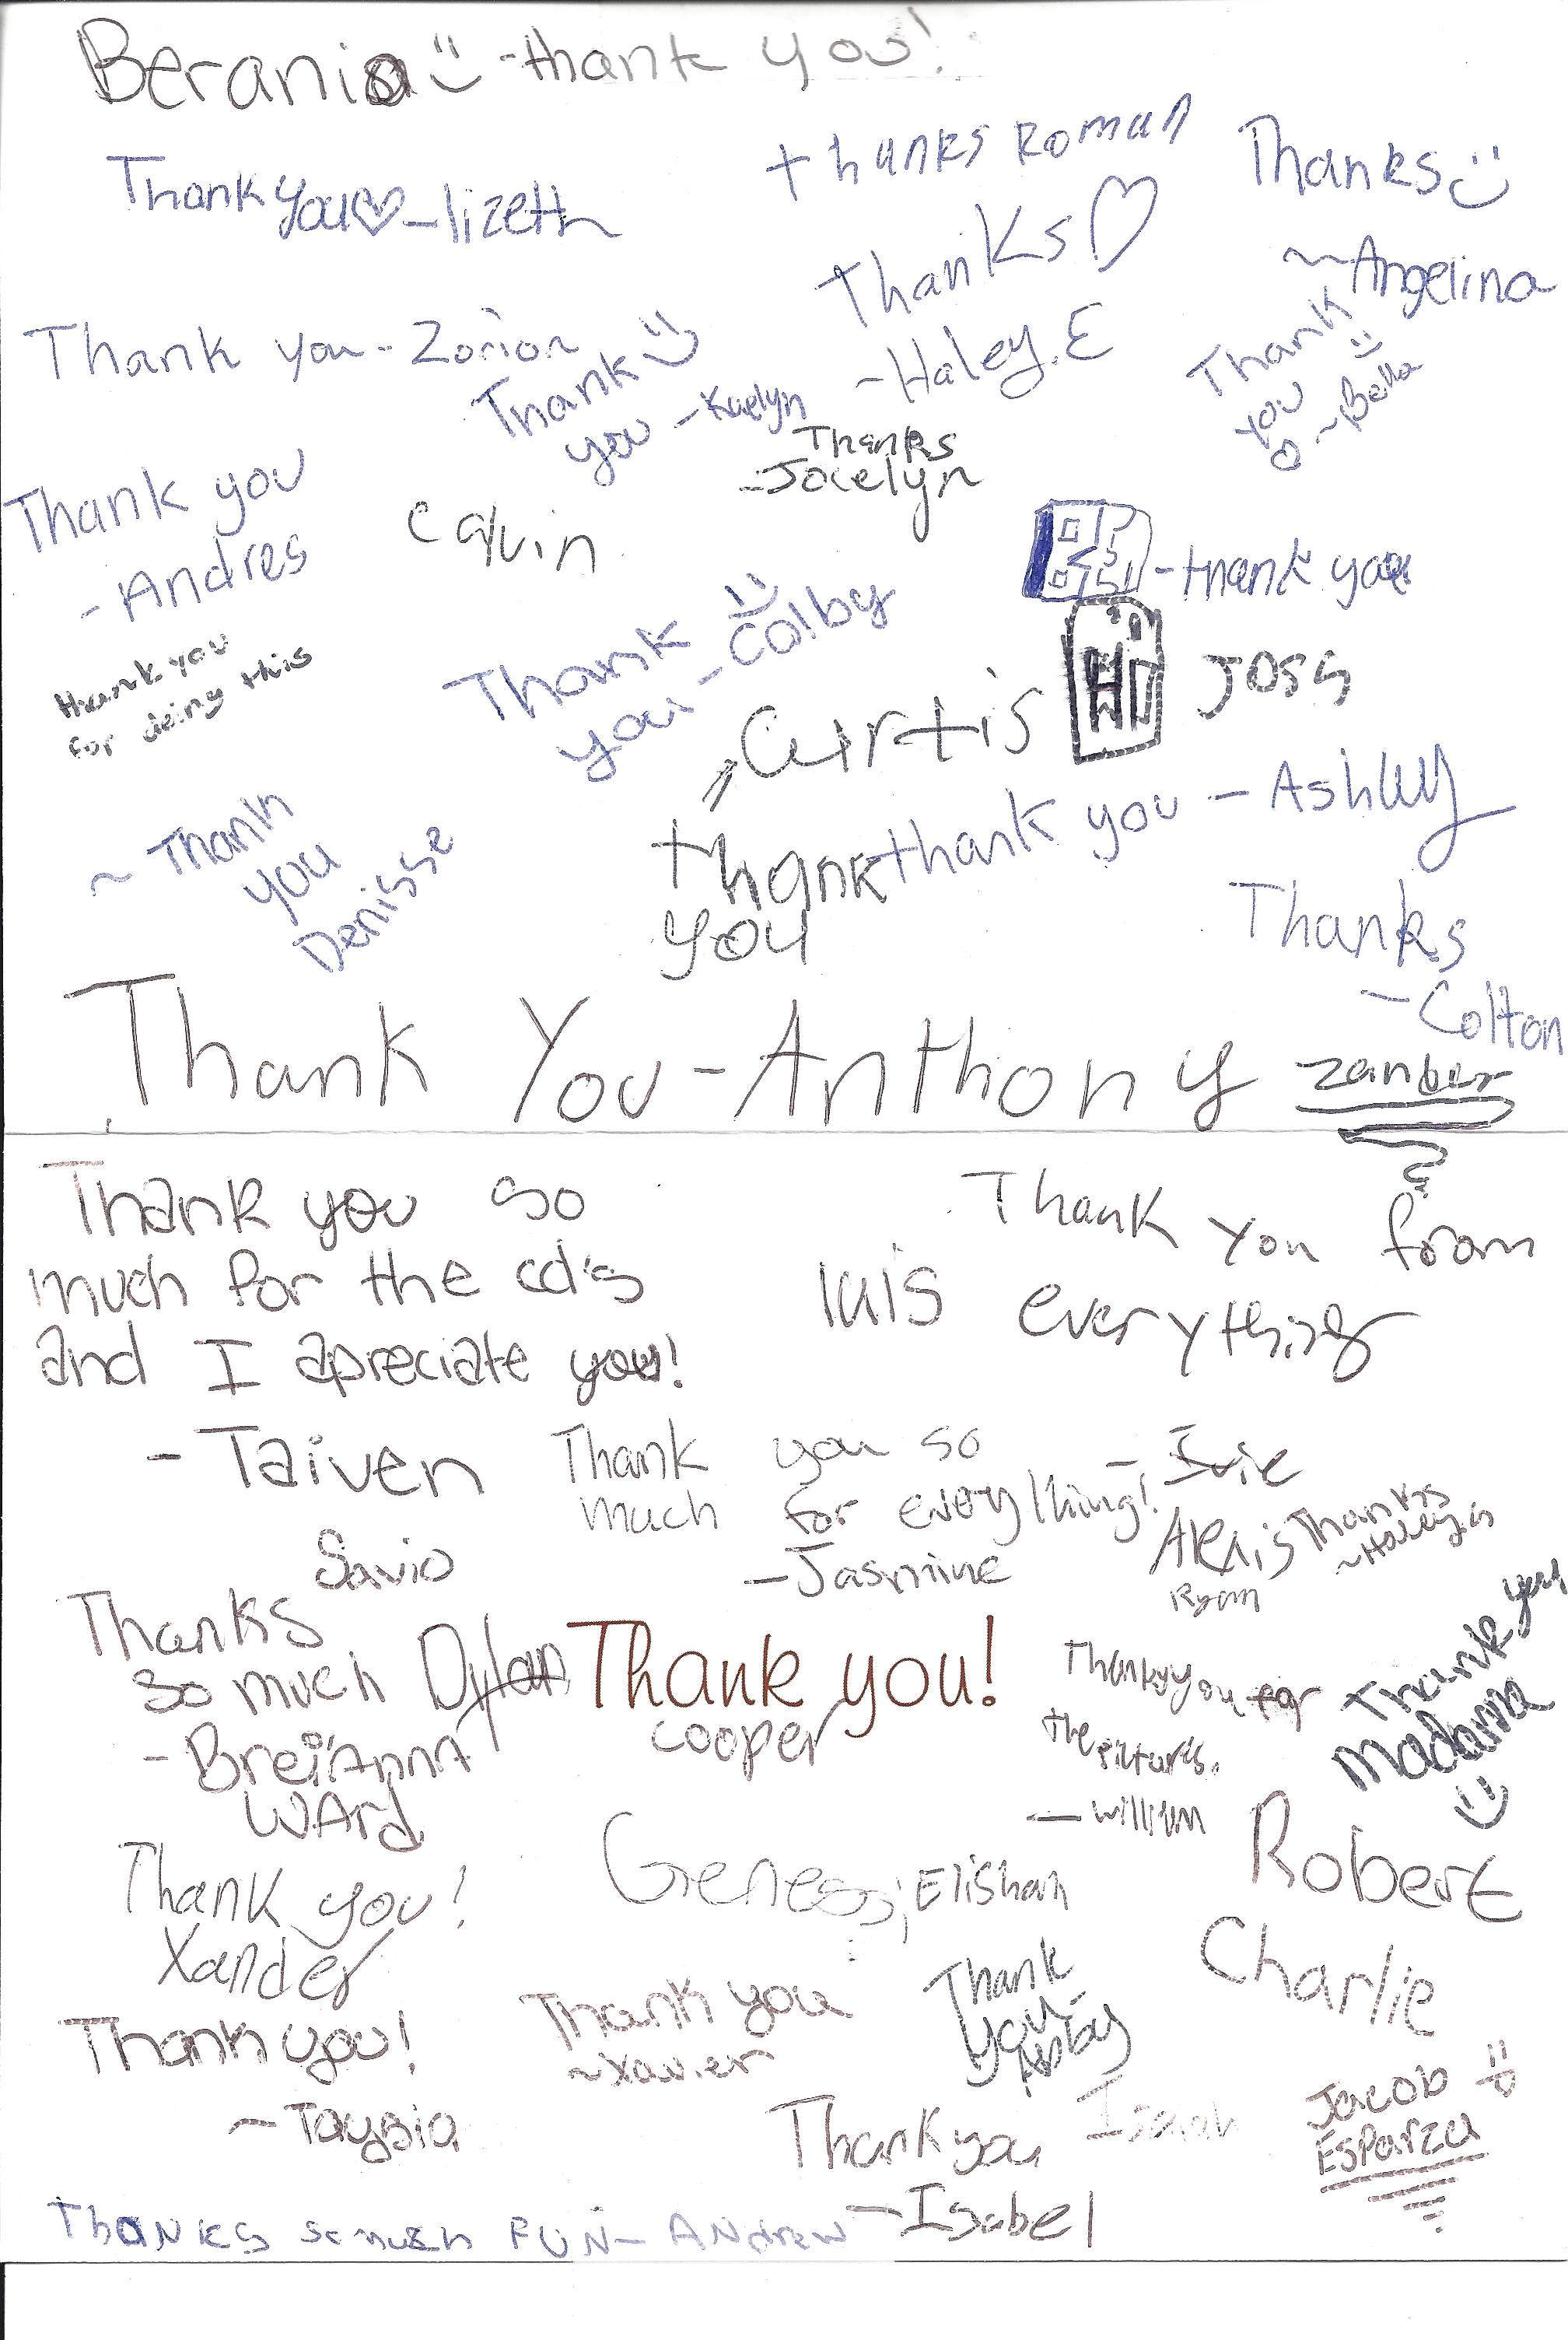 Berania -thank you!
Thank you -lizeth
thanks Roman
Thanks
~Angelina
Thanks
-Haley.E
Thank you - Zorion
Thank
you -Kaelyn
Thank
you
~Bella
Thanks
-Jocelyn
Thank you
-Andres
Calvin
-thank you
thank you
for doing this
Thank
you - Colby
Curtis
thank
you
Joss
thank you - Ashley
~ Thank
you
Denisse
Thanks
-Colton
Thank You-Anthony
zander
Thank you so
much for the cd's
and I apreciate you!
- Taiven
Thank you from
luis everything
Thank you so
much for everything!
-Jasmine
- Ivie
Alexis
Ryan
Thanks
~Haley
Savio
Thanks
so much
-BreiAnnA
WArd
Dylan
Thank you!
cooper
Thank you for
the picturs.
- william
Thank you
Madanna
Robert
Thank you!
Xander
Genesis
Elishah
Charlie
Thank you!
~ Taysia
Thank you
~Xavier
Thank
you-
Abby
Isaiah
Thank you
-Isabel
Jacob
Esparza
Thanks so much FUN- ANdrew